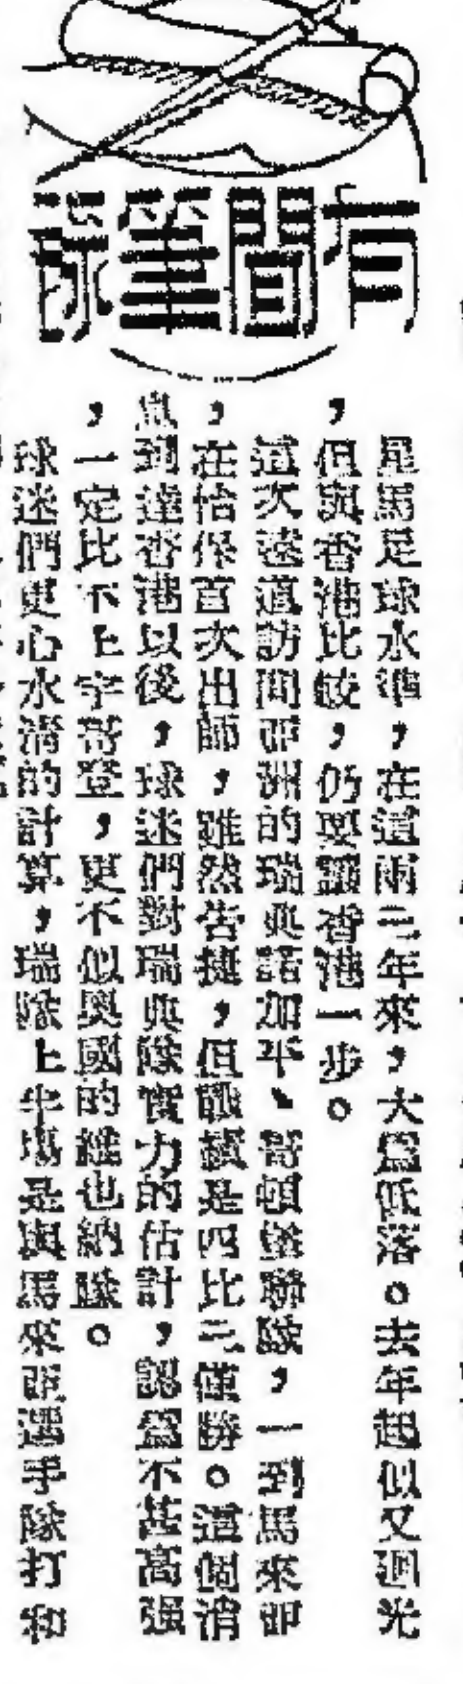 有間筆
星馬足球水準，在這兩三年來，大爲低落。去年起似又迴光
，但與香港比較，仍要讓香港一步。
這次遠道訪問亞洲的瑞典諾加平、哥頓堡聯隊，一到馬來即
，在怡保首次出師，雖然告捷，但戰績是四比三僅勝。這個消
息到達香港以後，球迷們對瑞典隊實力的估計，認爲不甚高强
，一定比不上宇哥登，更不似奧國的維也納隊。
球迷們更心水清的計算，瑞隊上半塲是與馬來亞選手隊打和